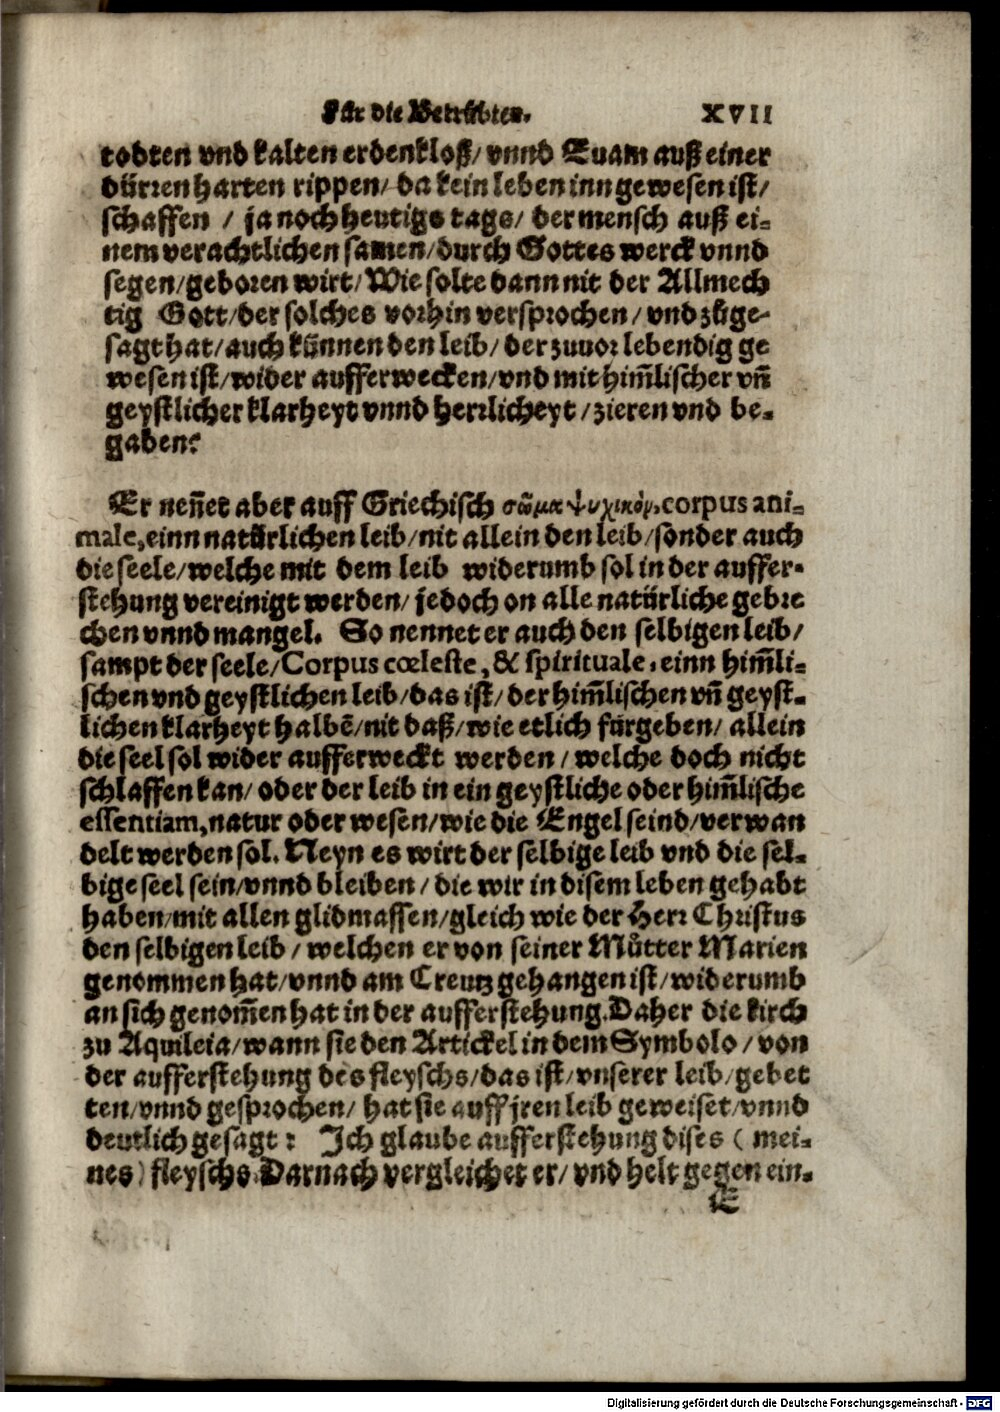 Für die Betrübten. XVII
todten vnd kalten erdenkloß/ vnnd Euam auß einer
dürren harten rippen/ da kein leben inn gewesen ist/
schaffen / ja noch heutigs tags/ der mensch auß ei-
nem verachtlichen samen/durch Gottes werck vnnd
segen/geboren wirt/Wie solte dann nit der Allmech
tig Gott/der solches vorhin versprochen/ vnd zůge-
sagt hat/auch künnen den leib/ der zuuor lebendig ge
wesen ist/wider aufferwecken/vnd mit him̄lischer vn̄
geystlicher klarheyt vnnd herrlicheyt/zieren vnd be-
gaben?
Er nen̄et aber auff Griechisch σῶμα ψυχικὸν, corpus ani-
male, einn natürlichen leib/nit allein den leib/sonder auch
die seele/welche mit dem leib widerumb sol in der auffer-
stehung vereinigt werden/ jedoch on alle natürliche gebre
chen vnnd mangel. So nennet er auch den selbigen leib/
sampt der seele/Corpus cœleste, & spirituale, einn him̄li-
schen vnd geystlichen leib/das ist/der him̄lischen vn̄ geyst-
lichen klarheyt halbē/nit daß/wie etlich fürgeben/ allein
die seel sol wider aufferweckt werden/welche doch nicht
schlaffen kan/oder der leib in ein geystliche oder him̄lische
essentiam, natur oder wesen/wie die Engel seind/verwan
delt werden sol. Neyn es wirt der selbige leib vnd die sel-
bige seel sein/vnnd bleiben/die wir in disem leben gehabt
haben/mit allen glidmassen/gleich wie der Herr Christus
den selbigen leib/ welchen er von seiner Můtter Marien
genommen hat/vnnd am Creutz gehangen ist/widerumb
an sich genom̄en hat in der aufferstehung. Daher die kirch
zu Aquileia/wann sie den Artickel in dem Symbolo/von
der aufferstehung des fleyschs/das ist/vnserer leib/gebet
ten/vnnd gesprochen/ hat sie auff jren leib geweiset/vnnd
deutlich gesagt: Ich glaube aufferstehung dises (mei-
nes) fleyschs. Darnach vergleichet er/ vnd helt gegen ein-
E
Digitalisierung gefördert durch die Deutsche Forschungsgemeinschaft - DFG